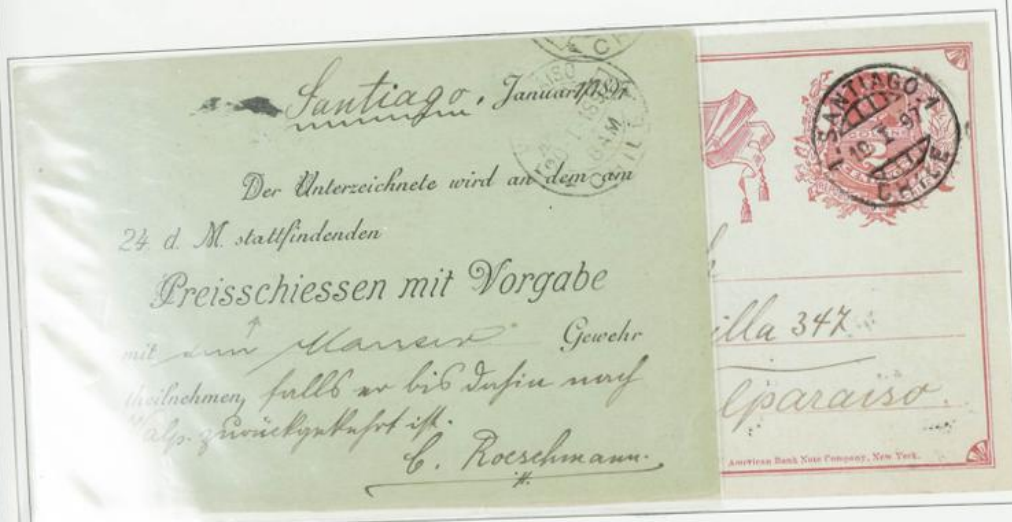 Santiago, Januar 17. 97
Der Unterzeichnete wird an dem am
24 d. M. stattfindenden
Preisschiessen mit Vorgabe
mit Mauser Gewehr
theilnehmen, falls er bis dahin nach
Valp. zurückgekehrt ist.
C. Roeschmann.
SANTIAGO 1
18 I 97
CHILE
illa 347
lparaiso.
American Bank Note Company, New York.